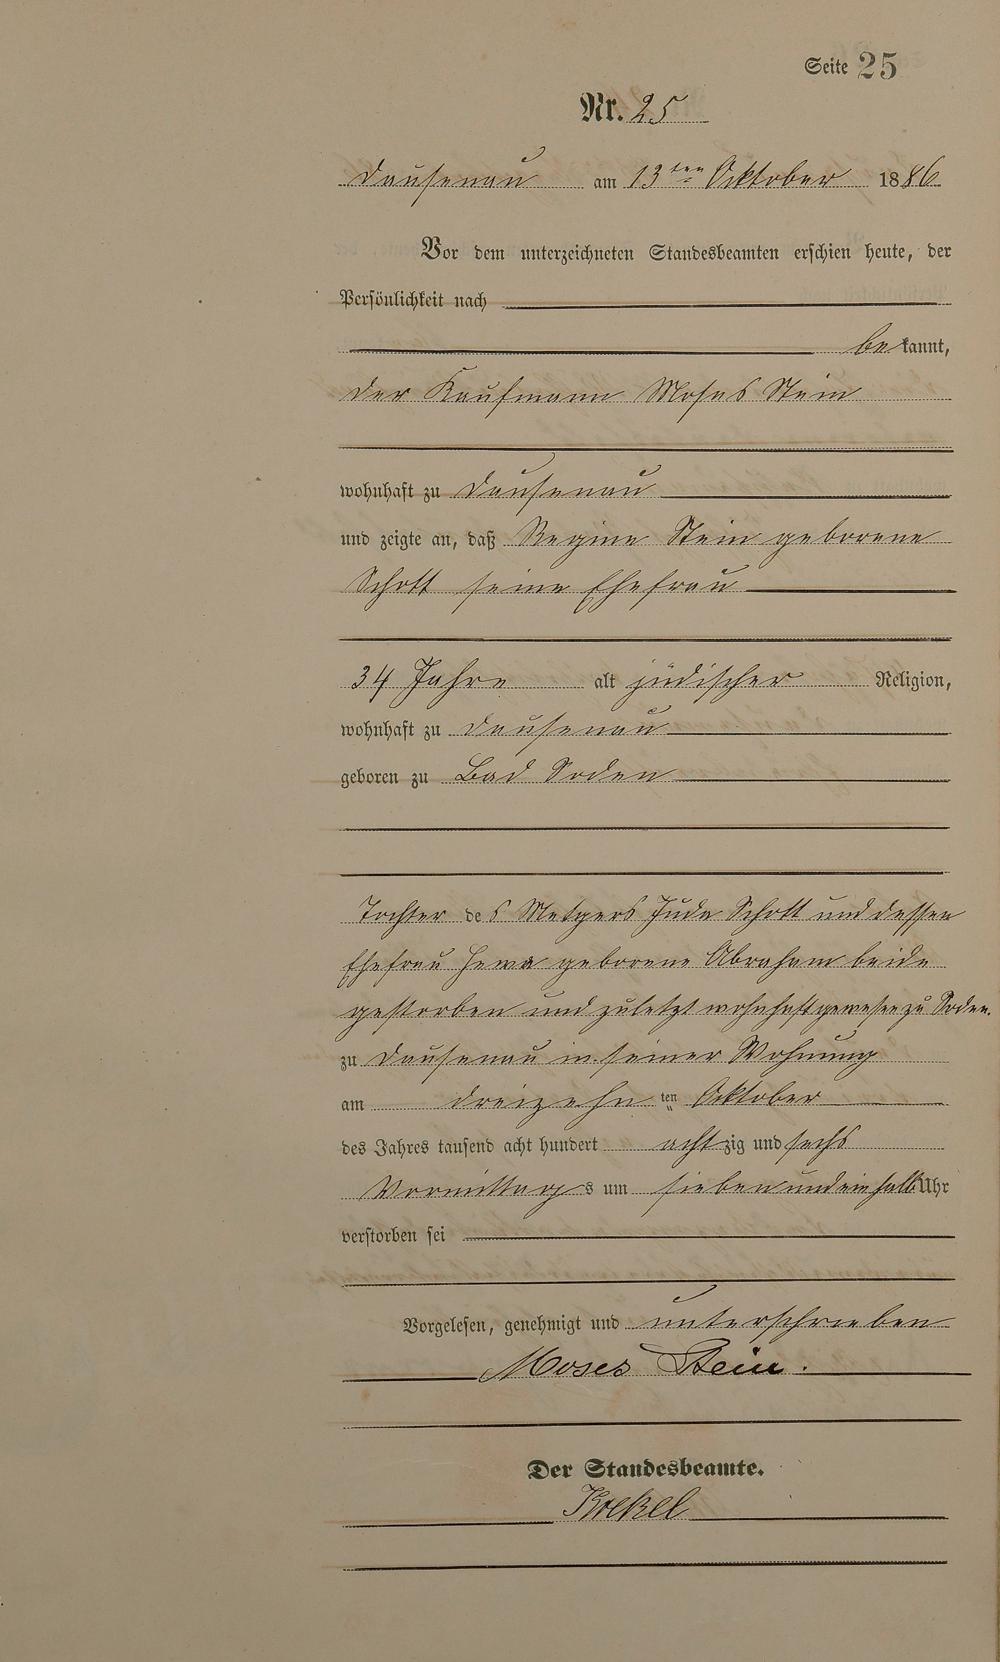 Seite 25
Nr. 25
Dausenau am 13ten Oktober 1886
Vor dem unterzeichneten Standesbeamten erschien heute, der
Persönlichkeit nach
bekannt,
der Kaufmann Moses Stein
wohnhaft zu Dausenau
und zeigte an, daß Regine Stein geborene
Schott seine Ehefrau
34 Jahre alt jüdischer Religion,
wohnhaft zu Dausenau
geboren zu Bad Soden
Tochter des Metzgers Juda Schott und dessen
Ehefrau Hewa geborene Abraham beide
gestorben und zuletzt wohnhaft gewesen zu Soden.
zu Dausenau in seiner Wohnung
am dreizehnten Oktober
des Jahres tausend acht hundert achtzig und sechs
Vormittags um sieben und ein halb Uhr
verstorben sei
Vorgelesen, genehmigt und unterschrieben
Moses Stein.
Der Standesbeamte.